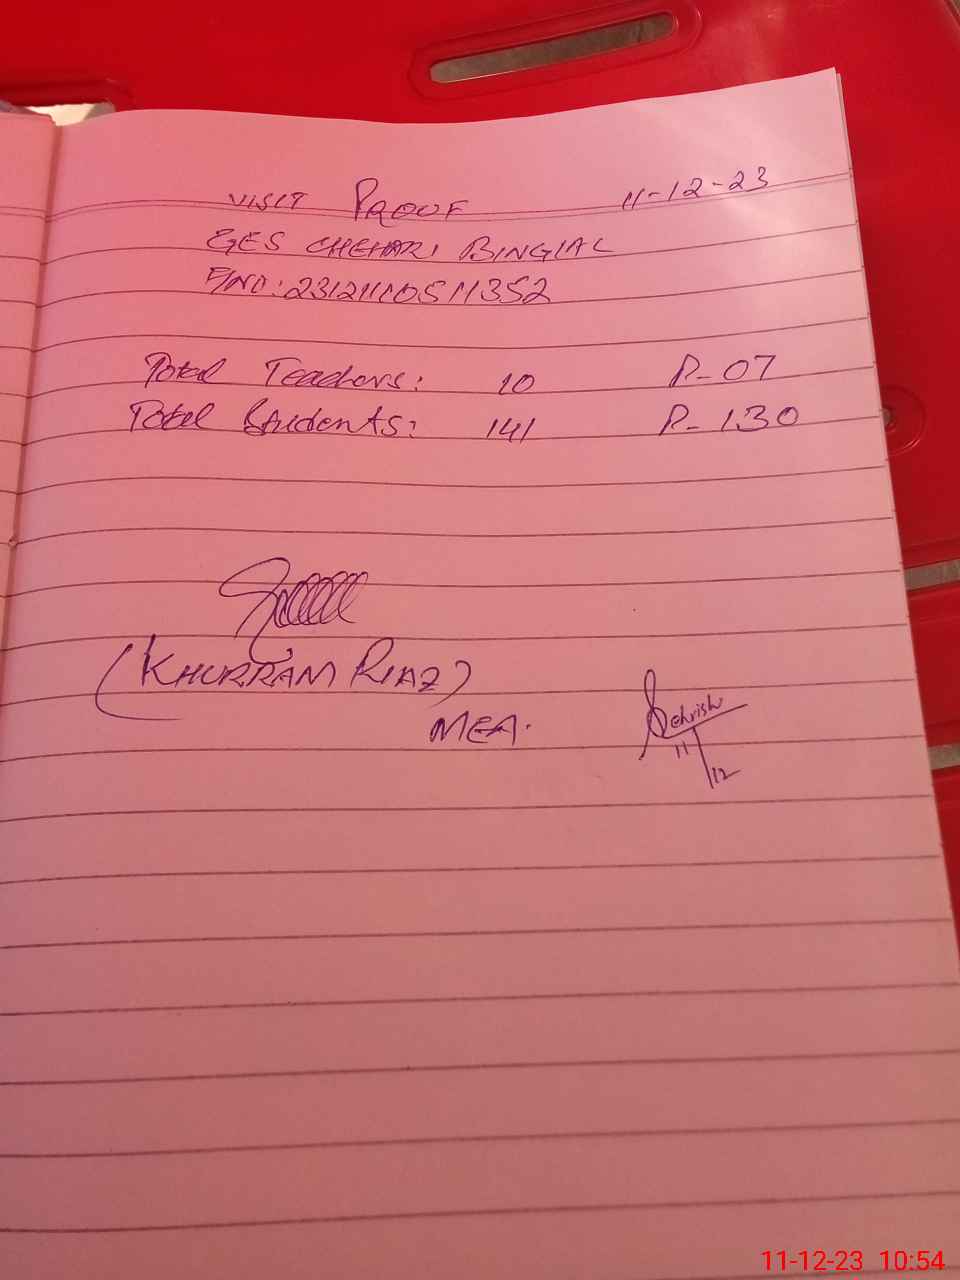 VISIT PROOF 11-12-23
GES CHEHARI BINGIAL
F/NO: 23121110511352
Total Teachers: 10 P-07
Total Students: 141 P-130
(KHURRAM RIAZ)
MEA.
Sehrish
11/12
11-12-23 10:54